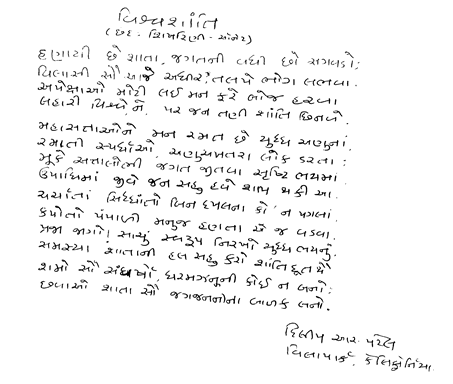 વિશ્વશાંતિ
(છંદ : શિખરિણી - સોનેટ)
હણાયી છે શાતા, જગતની બધી છો સગવડો;
વિલાસી સૌ આજે અધીર તલપે ભોગ લભવા.
અપેક્ષાઓ મોટી લઈ મન ફરે બોજ હરવા
લહારી વિશ્વોને પર જન તણી શાંતિ છિનવે.
મહાસત્તાઓને મન રમત છે યુદ્ધ અણુનાં
રમાતી સ્પર્ધાઓ, અણુઅસ્ત્રતા લોક ડરતા;
મૂકે સત્તાલોભી જગત જીતવા સૃષ્ટિ ભયમાં
ઉપાધિમાં જીવે જન સહુ હવે શાપ થકી આ.
ચર્ચાતાં સિદ્ધાંતો બિન દખલના કો' ન પગલાં
કપોતો પંપાળી મનુજ હણતા એ જ વડવા.
પ્રજા જાગો! સાચું સ્વરૂપ નિરખો યુદ્ધ ભયનું
સમસ્યા શાતાની હલ સહુ કરો શાંતિદૂત થૈ
શમો સૌ સંઘર્ષો, ધરમઝનૂની કોઈ ન બનો;
છવાઓ શાતા સૌ જગજનનીના બાળક બનો.
દિલીપ આર. પટેલ
વિલાપાર્ક, કેલિફોર્નિયા